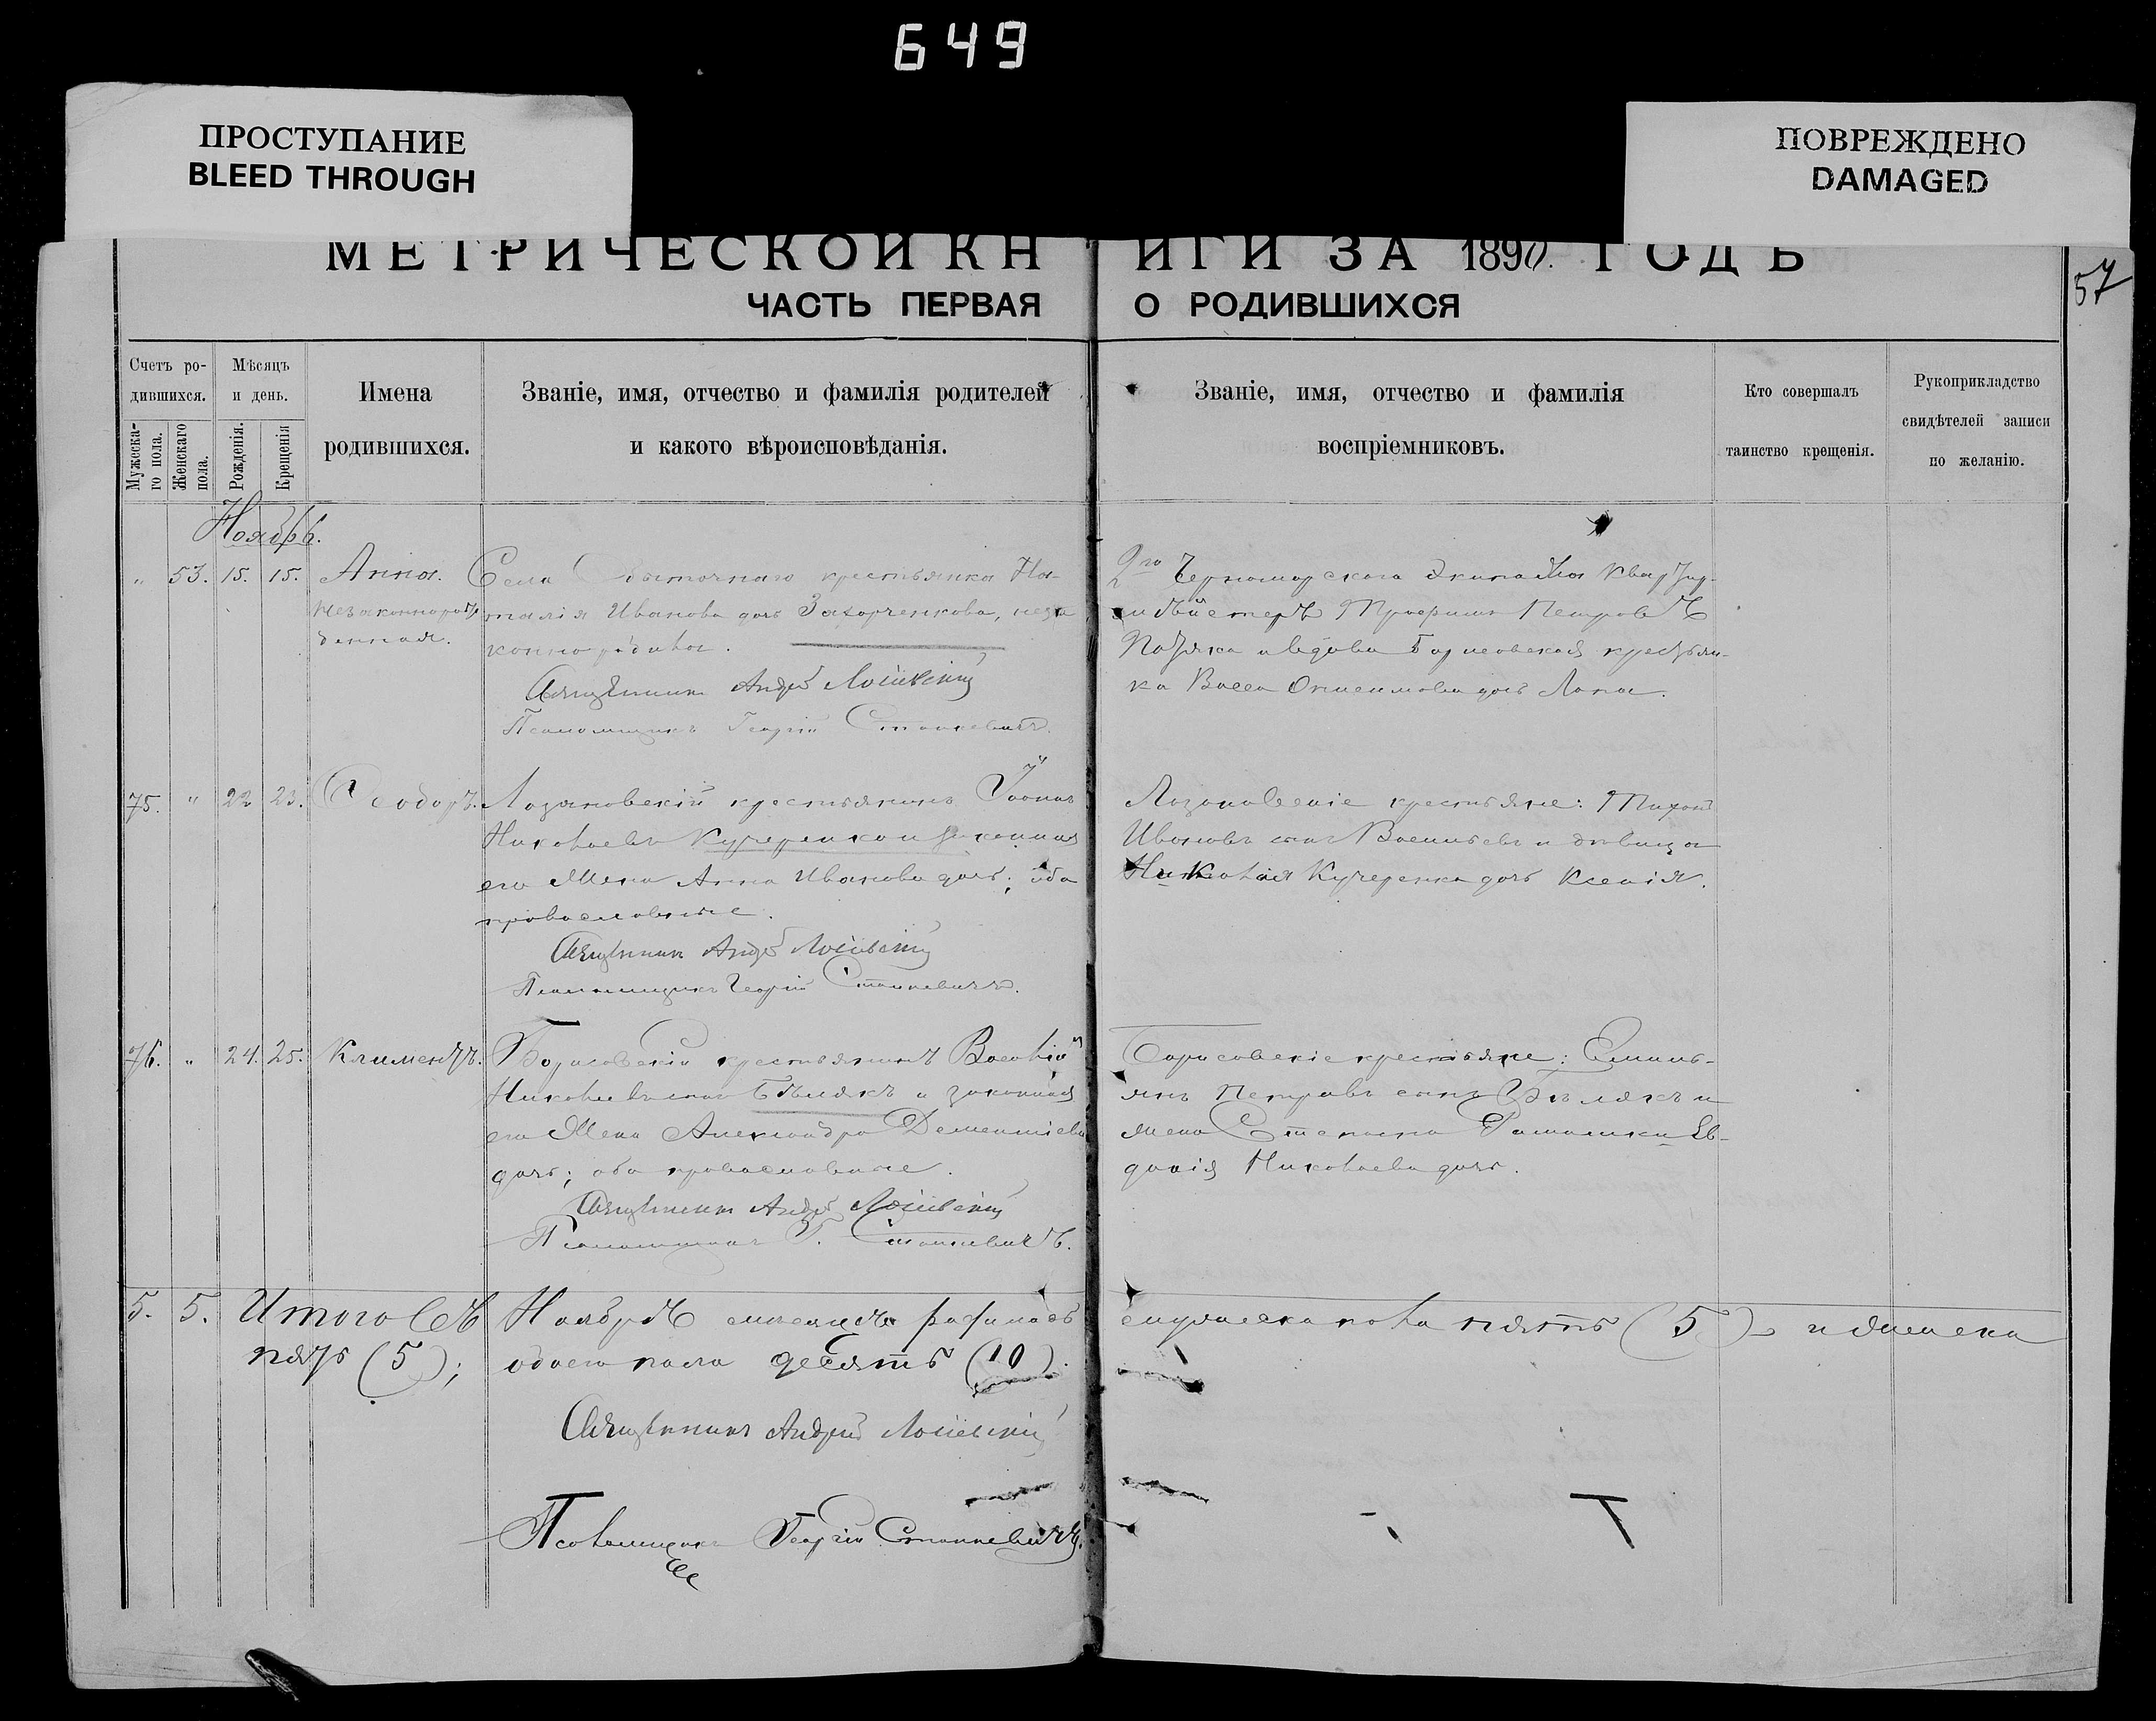 649
ПРОСТУПАНИЕ
BLEED THROUGH
ПОВРЕЖДЕНО
DAMAGED
МЕТРИЧЕСКОЙ КНИГИ ЗА 1890 ГОДЪ
57
ЧАСТЬ ПЕРВАЯ О РОДИВШИХСЯ
Счетъ ро-
дившихся.
Мужеска-
го пола.
Женскаго
пола.
Мѣсяцъ
и день.
Рожденія.
Крещенія
Имена
родившихся.
Званіе, имя, отчество и фамилія родителей
и какого вѣроисповѣданія.
Званіе, имя, отчество и фамилія
воспріемниковъ.
Кто совершалъ
таинство крещенія.
Рукоприкладство
свидѣтелей записи
по желанію.
Ноябрь.
" 53. 15. 15. Анна.
незаконнорож
денная.
Села крестьянка На-
талія Иванова дочь Захорченкова, неза
конно
Священникъ Андрей
Псаломщикъ Георгій Станкевичъ
2го Черноморскаго Экипажа Квартир-
Трофимъ Петровъ
и вдова Борисовская крестьян-
ка Васса Онисимова дочь
75. " 22 23. Ѳеодоръ.
Лозановскій крестьянинъ Іоаннъ
Николаевъ Кучеренко и законная
его жена Анна Иванова дочь; оба
православные.
Священникъ Андрей
Псаломщикъ Георгій Станкевичъ.
Лозановскіе крестьяне: Тихонъ
Ивановъ сынъ Васильевъ и дѣвица
Николая Кучеренка дочь Ксенія.
76. " 24. 25. Климентъ.
Борисовскій крестьянинъ Василій
Бѣлякъ и законная
его жена Александра Дементіева
дочь; оба православные.
Священникъ Андрей
Псаломщикъ Г. Станкевичъ.
Борисовскіе крестьяне: Емиль-
янъ Петровъ сынъ Бѣлякъ и
жена Степана Ев-
докія Николаева дочь.
5. 5. Итого въ Ноябрѣ мѣсяцѣ родилось мужеска пола пять (5) и женска
пять (5); обоего пола десять (10).
Священникъ Андрей
Псаломщикъ Георгій Станкевичъ.